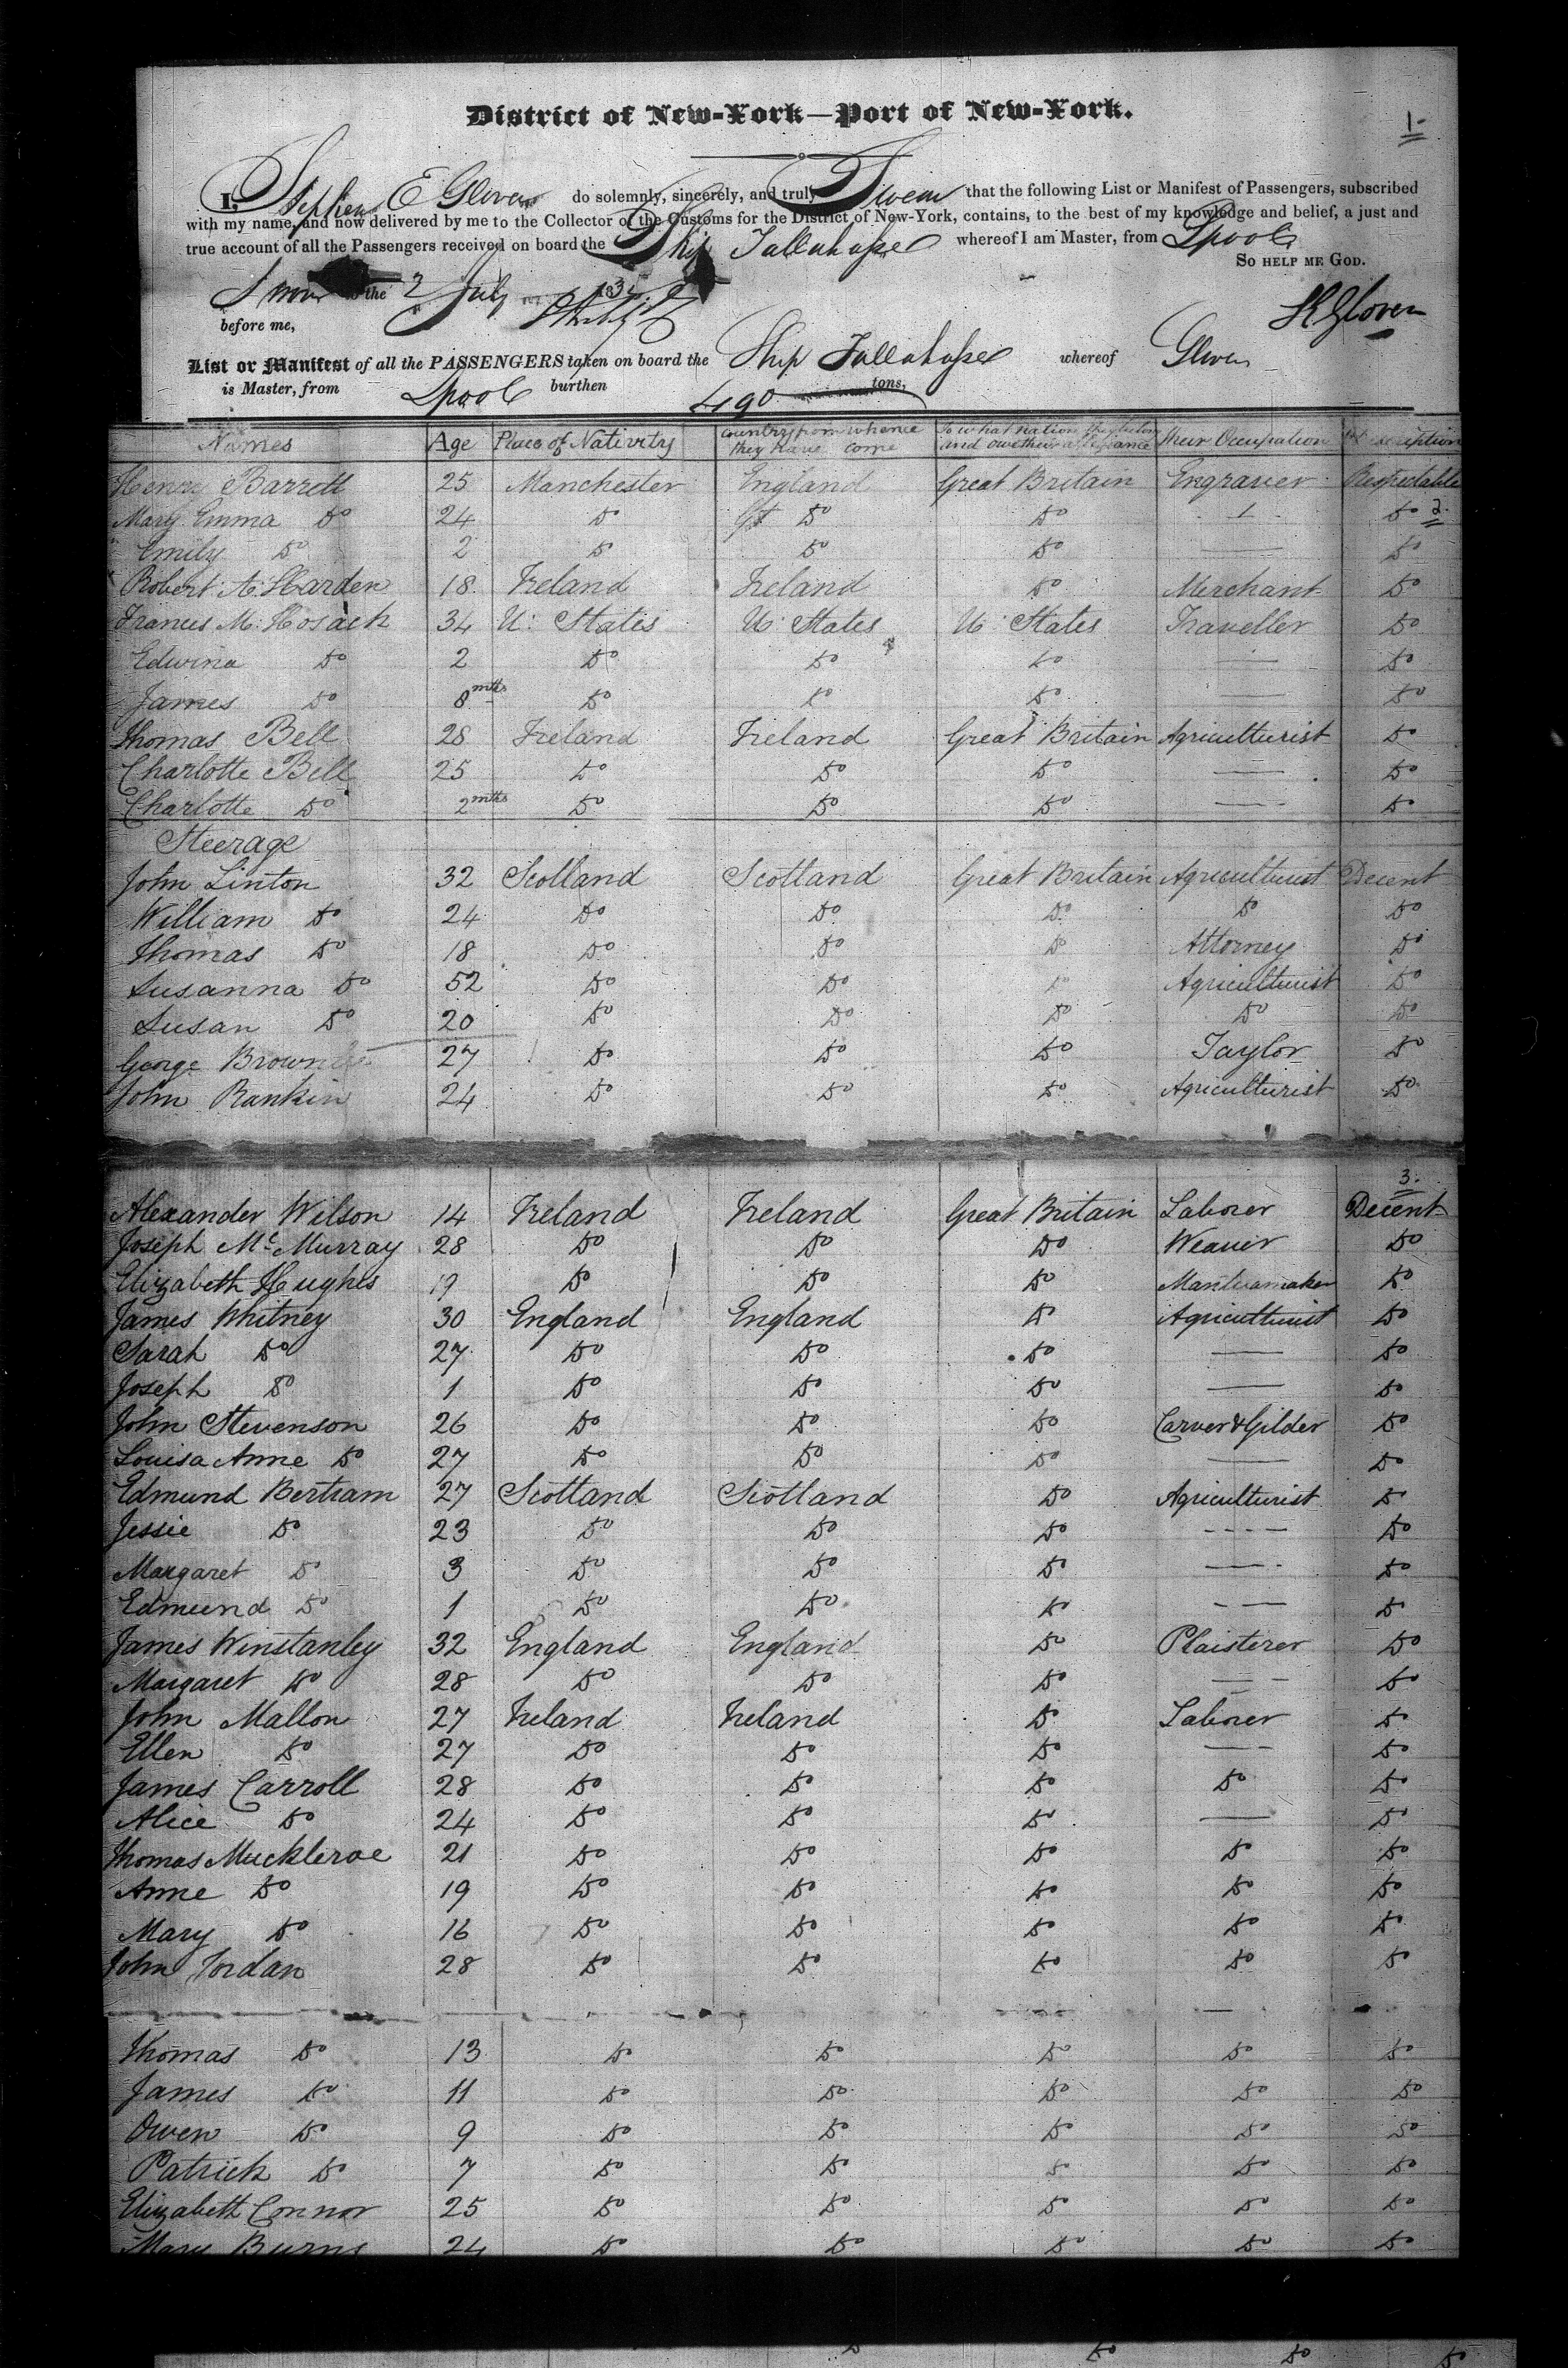 District of New-York—Port of New-York.
1-
I, Stephen E Glover do solemnly, sincerely, and truly Swear that the following List or Manifest of Passengers, subscribed
with my name, and now delivered by me to the Collector of the Customs for the District of New-York, contains, to the best of my knowledge and belief, a just and
true account of all the Passengers received on board the Ship Tallahassee whereof I am Master, from Lpool
So help me God.
Sworn to the 2 July 183
before me,
SEGlover
List or Manifest of all the PASSENGERS taken on board the Ship Tallahassee whereof Glover
is Master, from Lpool burthen 490 tons,
Names Age Place of Nativity Country from whence they have come To what nation they belong and owe their allegiance Their Occupation Description
Henry Barrett 25 Manchester England Great Britain Engraver Respectable
Mary Emma Do 24 Do Gt Do Do - 1 - Do 2.
Emily Do 2 Do Do Do — Do
Robert A. Harden 18 Ireland Ireland Do Merchant Do
Frances M. Hosack 34 U. States U. States U. States Traveller Do
Edwina Do 2 Do Do Do — Do
James Do 8 mths Do Do Do — Do
Thomas Bell 28 Ireland Ireland Great Britain Agriculturist Do
Charlotte Bell 25 Do Do Do — Do
Charlotte Do 2 mths Do Do Do — Do
Steerage
John Linton 32 Scotland Scotland Great Britain Agriculturist Decent
William Do 24 Do Do Do Do Do
Thomas Do 18 Do Do Do Attorney Do
Susanna Do 52 Do Do Do Agriculturist Do
Susan Do 20 Do Do Do Do Do
George 27 Do Do Do Taylor Do
John Rankin 24 Do Do Do Agriculturist Do
3.
Alexander Wilson 14 Ireland Ireland Great Britain Laborer Decent
Joseph McMurray 28 Do Do Do Weaver Do
Elizabeth Hughes 19 Do Do Do Mantuamaker Do
James Whitney 30 England England Do Agriculturist Do
Sarah Do 27 Do Do Do — Do
Joseph Do 1 Do Do Do — Do
John Stevenson 26 Do Do Do Carver & Gilder Do
Louisa Anne Do 27 Do Do Do — Do
Edmund Bertram 27 Scotland Scotland Do Agriculturist Do
Jessie Do 23 Do Do Do ---- Do
Margaret Do 3 Do Do Do — Do
Edmund Do 1 Do Do Do — Do
James Winstanley 32 England England Do Plaisterer Do
Margaret Do 28 Do Do Do — Do
John Mallon 27 Ireland Ireland Do Laborer Do
Ellen Do 27 Do Do Do — Do
James Carroll 28 Do Do Do Do Do
Alice Do 24 Do Do Do — Do
Thomas Mucklerae 21 Do Do Do Do Do
Anne Do 19 Do Do Do Do Do
Mary Do 16 Do Do Do Do Do
John Jordan 28 Do Do Do Do Do
Thomas Do 13 Do Do Do Do Do
James Do 11 Do Do Do Do Do
Owen Do 9 Do Do Do Do Do
Patrick Do 7 Do Do Do Do Do
Elizabeth Connor 25 Do Do Do Do Do
Mary Burns 24 Do Do Do Do Do
Do Do Do Do